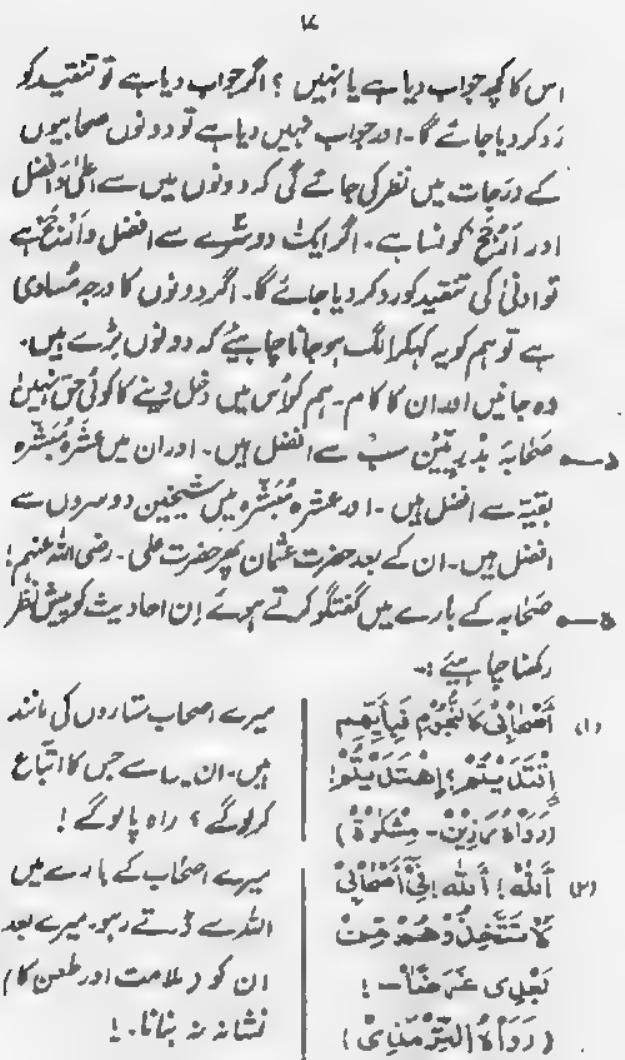 ۱۷
اس کا کچھ جواب دیا ہے یا نہیں ؟ اگر جواب دیا ہے تو تنقید کو
رَد کر دیا جائے گا۔ اور جواب نہیں دیا ہے تو دونوں صحابیوں
کے درَجات میں نظر کی جائے گی کہ دونوں میں سے اعلیٰ وَافضل
اور اَرْجَح کونسا ہے۔ اگر ایک دوسرے سے افضل و اَرْجَح ہے
تو ادنیٰ کی تنقید کو رد کر دیا جائے گا۔ اگر دونوں کا درجہ مُساوی
ہے تو ہم کو یہ کہکر الگ ہو جانا چاہیئے کہ دونوں بڑے ہیں۔
وہ جانیں اور ان کا کام۔ ہم کو اُس میں دخل دینے کا کوئی حق نہیں
صَحَابَۂ بَدْرِیِّیْن سب سے افضل ہیں۔ اور ان میں عشرۂ مُبَشَّرہ
بقیّہ سے افضل ہیں۔ اور عشرہ مُبَشَّرہ میں شیخین دوسروں سے
افضل ہیں۔ ان کے بعد حضرت عثمان پھر حضرت علی۔ رضی اللہ عنہم!
صَحَابہ کے بارے میں گفتگو کرتے ہوئے اِن احادیث کو پیشِ نظر
رکھنا چاہیئے :۔
(۱) أَصْحَابِیْ کَالنُّجُوْمِ فَبِأَیِّهِم
اِقْتَدَیْتُمْ؛ اِهْتَدَیْتُمْ!
(رَوَاهُ رَزِیْنْ۔ مِشْکوٰةْ)
میرے اصحاب ستاروں کی مانند
ہیں۔ ان میں سے جس کا اتّباع
کرلوگے ، راہ پالوگے !
(۲) أَللّٰهْ! أَللّٰه! فِیْ أَصْحَابِیْ
لَا تَتَّخِذُوْهُمْ مِّنْ
بَعْدِی غَرَضًا۔ !
(رَوَاهُ التِّرْمَذِیْ)
میرے اصحاب کے بارے میں
اللہ سے ڈرتے رہو۔ میرے بعد
ان کو (ملامت اور طعن کا)
نشانہ نہ بنانا۔ !